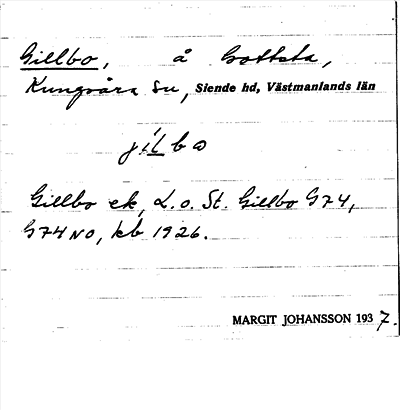 Gillbo, å Gottsta,
Kungsåra sn, Siende hd, Västmanlands län
jilbo
Gillbo ek, L. o. St. Gillbo G74,
G74NO, kb 1926.
MARGIT JOHANSSON 1937.